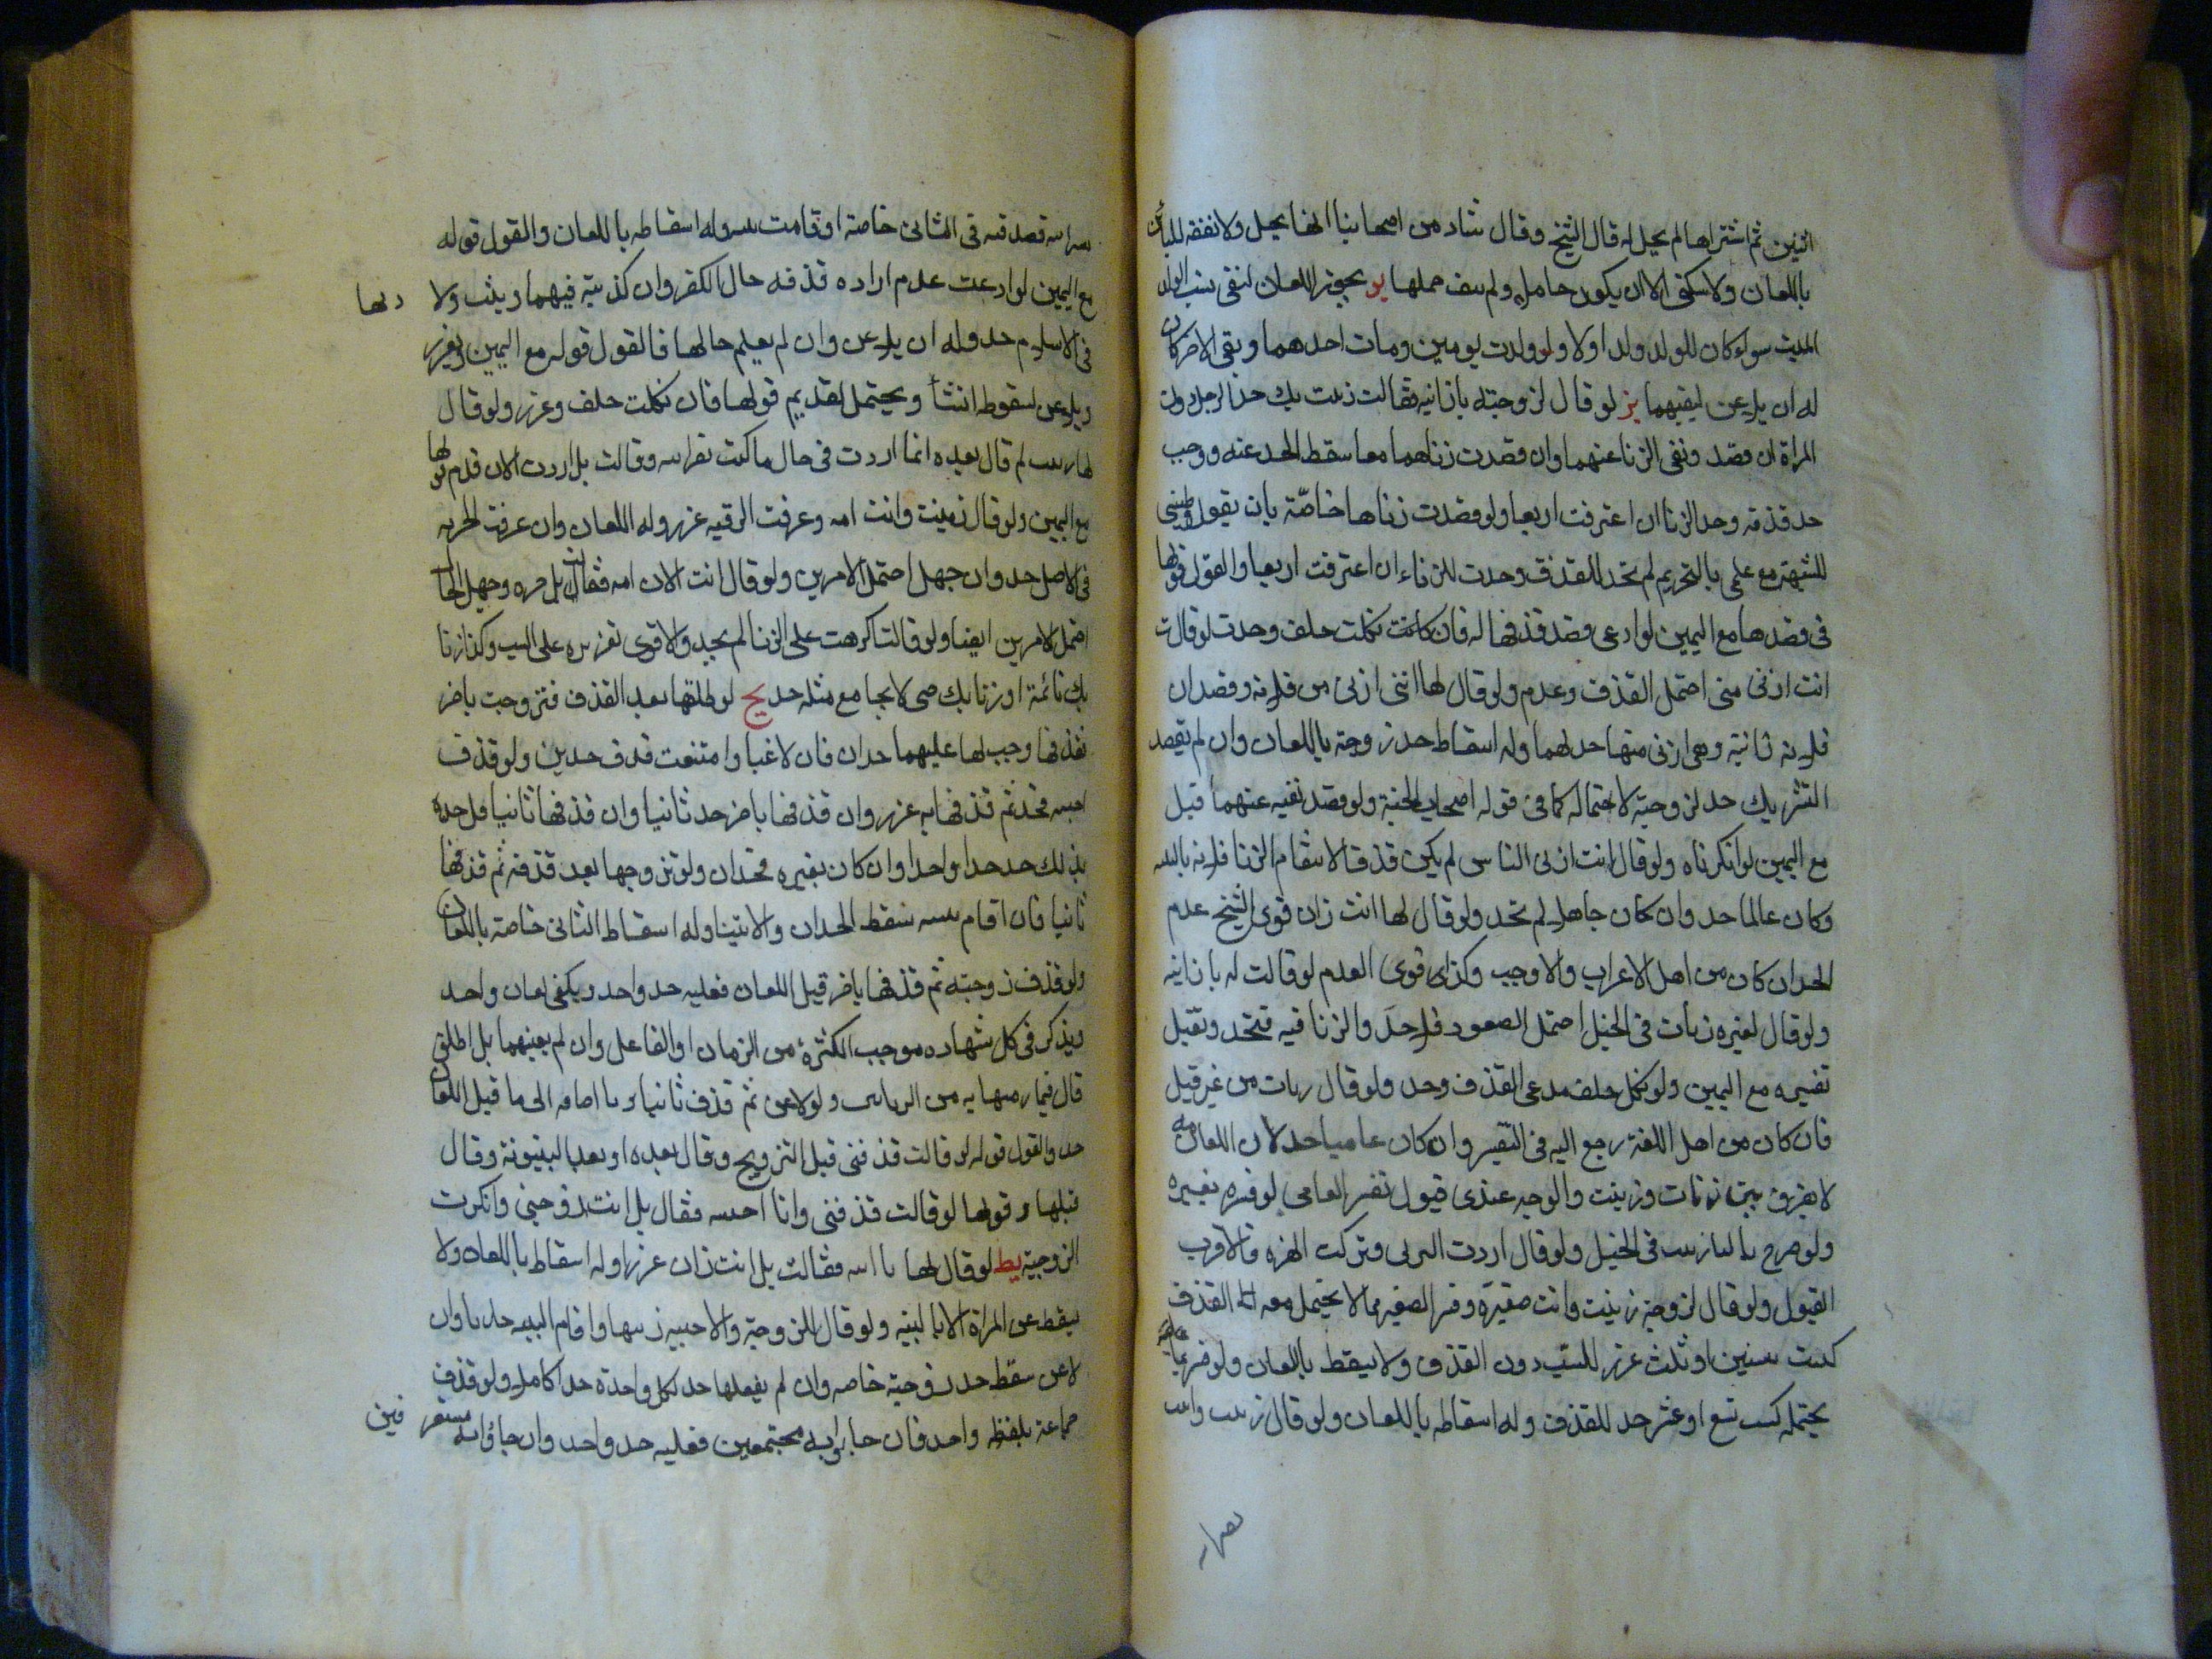 اثنين ثم اشتراها لم يحل له قال الشيخ وقال شاذ من اصحابنا انها يحل ولا نفقة للبائن
باللعان ولا سكنى الا ان يكون حاملا ولم ينف حملها يو يجوز اللعان لنفى نسب الولد
الميت سواء كان للولد ولد او لا ولو ولدت تومين ومات احدهما وبقى الاخر كان
له ان يلاعن لنفيهما يز لو قال لزوجته يا زانيه فقالت زنيت بك حد الرجل دون
المراة ان قصد ونفى الزنا عنهما وان قصدت زناهما معا سقط الحد عنه ووجب
حد قذفه وحد الزنا ان اعترفت اربعا ولو قصدت زناها خاصّة بان يقول وطيتنى
للشبهة مع علمى بالتحريم لم تحد للقذف وحدت للزناء ان اعترفت اربعا والقول قولها
فى قصدها مع اليمين لو ادعى قصد قذفها له فان كانت نكلت حلف وحدت لو قالت
انت ازنى منى احتمل القذف وعدمه ولو قال لها انتى ازنى من فلانه وقصد ان
فلانه زانية وهى ازنى منها حد لهما وله اسقاط حد زوجته باللعان وان لم يقصد
التشريك حد لزوجته لاحتماله كما فى قوله اصحاب الجنة ولو قصد نفيه عنهما قبل
مع اليمين لو انكرتاه ولو قال انت ازنى الناس لم يكن قذفا الا بتقدم الزنا فلانه بالبينه
وكان عالما حد وان كان جاهلا لم تحد ولو قال لها انت زان قوى الشيخ عدم
الحد ان كان من اهل الاعراب والا وجب وكذا قوى العدم لو قالت له يا زانيه
ولو قال لغيره زنأت فى الجبل احتمل الصعود فلا حدّ والزنا فيه فتحد ويقبل
تفسيره مع اليمين ولو نكل حلف مدعى القذف وحد ولو قال زنات من غير قيل
فان كان من اهل اللغة رجع اليه فى التفسير وان كان عاميا حد لان العامه
لا يفرق بين زنات وزنيت والوجه عندى قبول تفسير العامى لو فسره بغيره
ولو صرح بالياء زنيت فى الجبل ولو قال اردت الترقى وتركت الهمزه فالاقرب
القبول ولو قال لزوجته زنيت وانت صغيره وفسر الصغير بما لا يحتمل معه القذف
كبنت سنتين او ثلث عزر للسبّ دون القذف ولا يسقط باللعان ولو فسرها بما
يحتمله كبنت تسع او عشر حد للقذف وله اسقاطه باللعان ولو قال زنيت وانت
نصرانيه
نصرانيه فصدقته فى الثانى خاصة او قامت بينه وله اسقاطه باللعان والقول قوله
مع اليمين لو ادعت عدم اراده قذفه حال الكفر وان كذبته فيهما ويثبت ولا دتها
فى الاسلام حد وله ان يلاعن وان لم يعلم حالها فالقول قوله مع اليمين ويعزر
ويلاعن لسقوطه انشأ ويحتمل تقديم قولها فان نكلت حلف وعزر ولو قال
لها زنيت ثم قال بعده انما اردت فى حال ما كنت نصرانيه وقالت بل اردت الان قدم قولها
مع اليمين ولو قال زنيت وانت امه وعرفت الرقيه عزر وله اللعان وان عرفت الحريه
فى الاصل حد وان جهل احتمل الامرين ولو قال انت الان امه فقالت بل حره وجهل الحال
احتمل الامرين ايضا ولو قالت اكرهت على الزنا لم يحد والاقوى تعزيره على السب وكذا زنا
بك نائمة او زنا بك صبى لا يجامع مثله حد يح لو طلقها بعد القذف فتزوجت باخر
فقذفها وجب لها عليهما حدان فان لاعنا وامتنعت حدت حدين ولو قذف
اجنبيه فحد ثم قذفها به عزر وان قذفها باخر حد ثانيا وان قذفها ثانيا قبل حده
بذلك حد حدا واحدا وان كان بغيره فحدان ولو تزوجها بعد قذفه ثم قذفها
ثانيا فان اقام بينه سقط الحدان والا ثبتا وله اسقاط الثانى خاصة باللعان
ولو قذف زوجته ثم قذفها باخر قبل اللعان فعليه حد واحد ويكفى لعان واحد
ويذكر فى كل شهاده موجب الكثرة من الزمان او الفاعل وان لم يعينهما بل اطلق
قال فيما رميتها به من الزنائين ولو لاعن ثم قذف ثانيا بزنا اضافه الى ما قبل اللعان
حد والقول قوله لو قالت قذفنى قبل التزويج وقال بعده او بعد البينونة وقال
قبلها وقولها لو قالت قذفنى وانا اجنبيه فقال بل انت زوجتى وانكرت
الزوجية يط لو قال لها يا زانيه فقالت بل انت زان عزرا وله اسقاط باللعان ولا
يسقط عن المراة الا بالبينه ولو قال للزوجة والاجنبيه زنيتما واقام البينه حدتا وان
لاعن سقط حد زوجته خاصه وان لم يفعلهما حد لكل واحدة حدا كاملا ولو قذف
جماعة بلفظ واحد فان جاؤا به مجتمعين فعليه حد واحد وان جاؤا به متفرقين